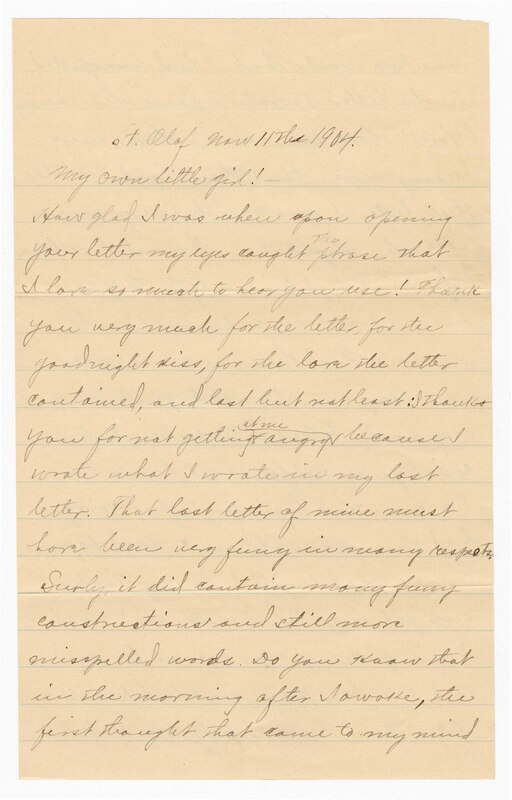 St. Olaf Nov 11th 1904.
My own little girl! —
How glad I was when upon opening
your letter my eyes caught the phrase that
I love so much to hear you use! Thank
you very much for the letter, for the
goodnight kiss, for the love the letter
contained, and last but not least: I thank
you for not getting at me angry because I
wrote what I wrote in my last
letter. That last letter of mine must
have been very funy in many respects.
Surly it did contain many funy
constructions and still more
misspelled words. Do you know that
in the morning after I awoke, the
first thought that came to my mind